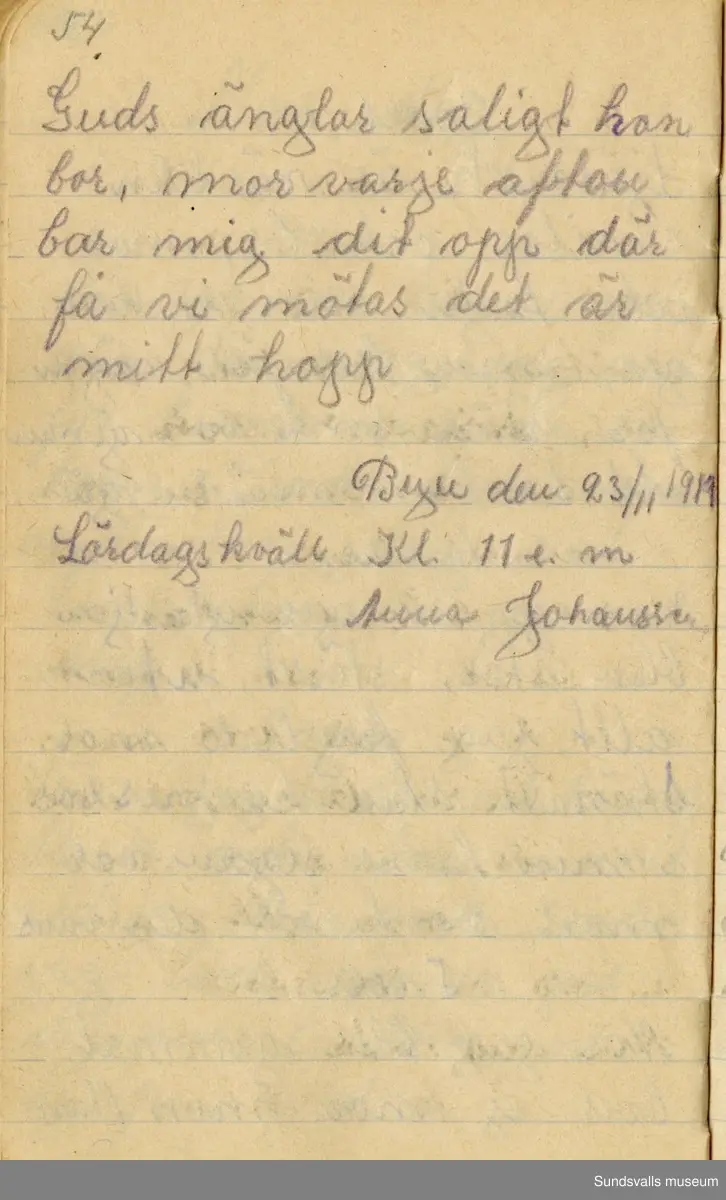 54
Guds änglar saligt hon
bor, mor varje afton
bar mig dit opp där
få vi mötas det är
mitt hopp
den 23/11
Lördagskväll Kl. 11 e. m
Anna Johansson
Sundsvalls museum